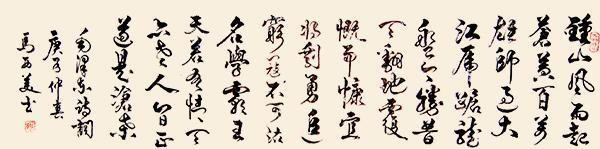 鍾山風雨起
蒼黃百萬
雄師過大
江虎踞龍
盤今勝昔
天翻地覆
慨而慷宜
將剩勇追
窮寇不可沽
名學霸王
天若有情天
亦老人間正
道是滄桑
毛澤東詩詞
庚子仲夏